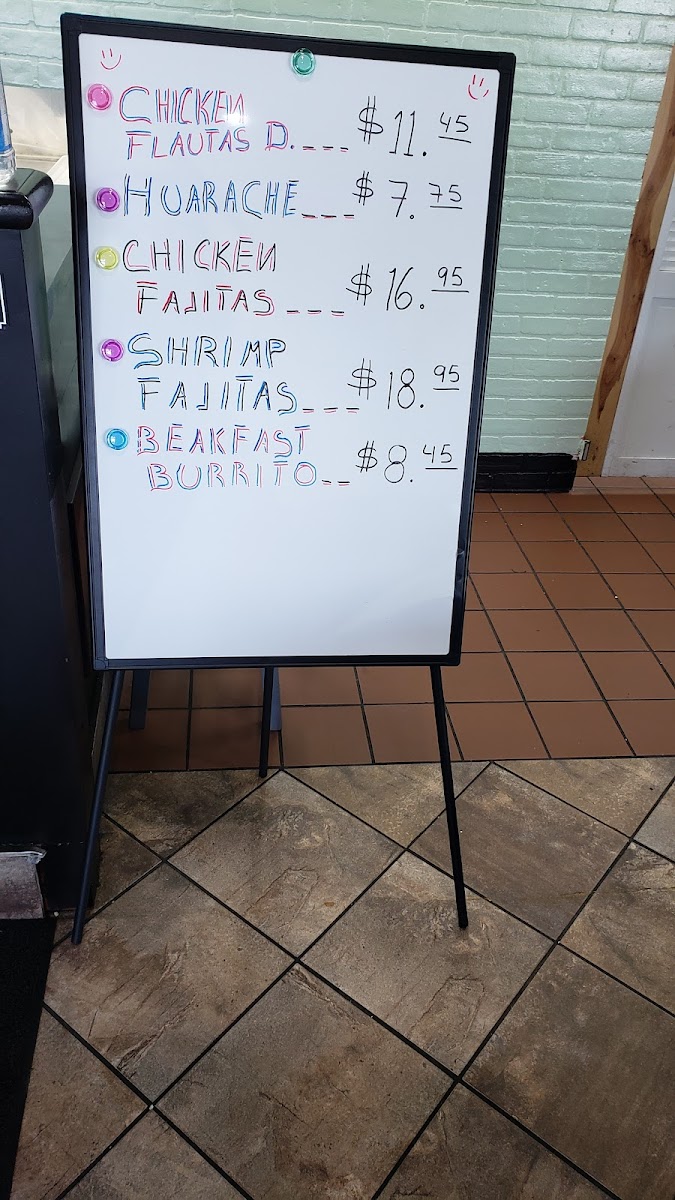 CHICKEN
FLAUTAS D.___ $11.45
HUARACHE___$7.75
CHICKEN
FAJITAS___ $16.95
SHRIMP
FAJITAS___ $18.95
BEAKFAST
BURRITO__ $8.45